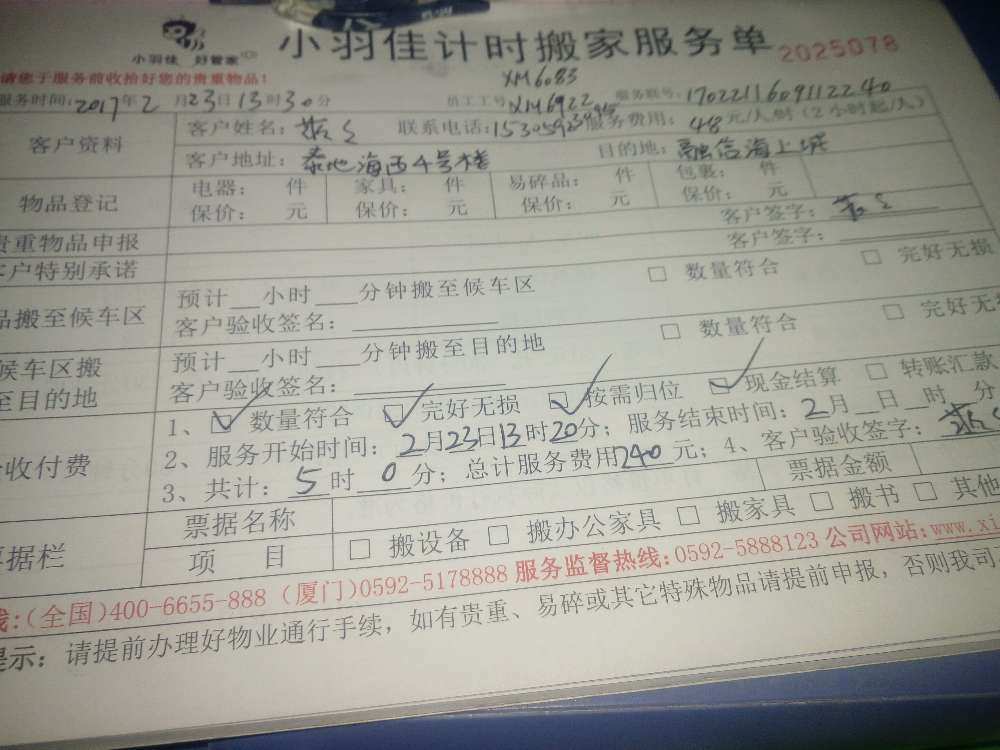 小羽佳 好管家
小羽佳计时搬家服务单
2025078
请您于服务前收拾好您的贵重物品!
XM6083
服务时间: 2017年2月23日13时30分 员工工号: XM6922 服务联号: 1702211609112240
客户资料 客户姓名: 联系电话: 服务费用: 48元/人/时(2小时起/人)
客户地址: 泰地海西4号楼 目的地: 融信海上城
物品登记 电器: 件 家具: 件 易碎品: 件 包裹: 件
保价: 元 保价: 元 保价: 元 保价: 元
贵重物品申报 客户签字:
客户特别承诺 客户签字:
品搬至候车区 预计 小时 分钟搬至候车区 □ 数量符合 □ 完好无损
客户验收签名:
候车区搬至目的地 预计 小时 分钟搬至目的地 □ 数量符合 □ 完好无
客户验收签名:
收付费 1、☑ 数量符合 ☑ 完好无损 ☑ 按需归位 ☑ 现金结算 □ 转账汇款
2、服务开始时间: 2月23日13时20分; 服务结束时间: 2月 日 时 分
3、共计: 5时0分; 总计服务费用240元; 4、客户验收签字:
票据栏 票据名称 票据金额
项 目 □ 搬设备 □ 搬办公家具 □ 搬家具 □ 搬书 □ 其他
线:(全国)400-6655-888 (厦门)0592-5178888 服务监督热线:0592-5888123 公司网站:www.xi
提示: 请提前办理好物业通行手续, 如有贵重、易碎或其它特殊物品请提前申报, 否则我司